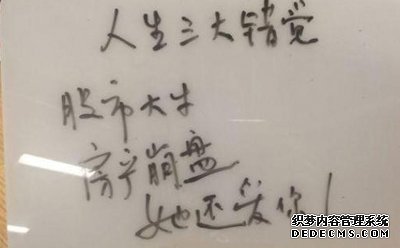 人生三大错觉
股市大牛
房产崩盘
她还爱你！
织梦内容管理系统
DEDECMS.COM